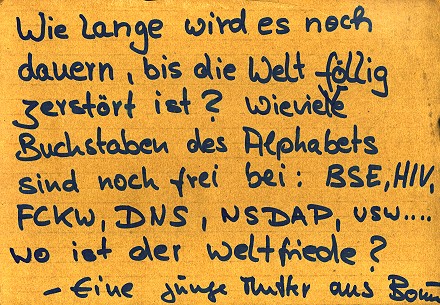 Wie Lange wird es noch
dauern, bis die Welt föllig
zerstört ist? Wieviele
Buchstaben des Alphabets
sind noch frei bei: BSE, HIV,
FCKW, DNS, NSDAP, usw....
wo ist der Weltfriede?
- Eine junge Mutter aus Bonn